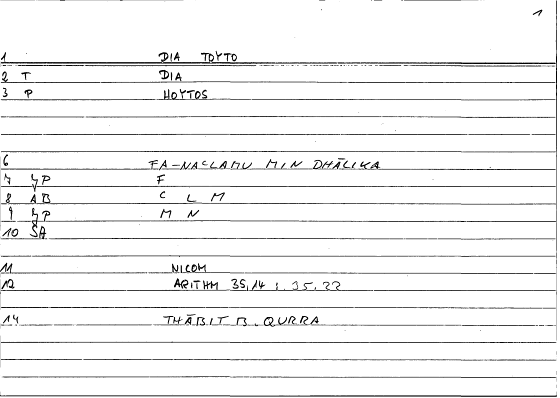 1
1 DIA TOYTO
2 T DIA
3 P HOYTOS
6 FA-NACLAMU MIN DHĀLIKA
7 YP F
8 AB C L M
9 YP M N
10 SA
11 NICOM
12 ARITHM 35,14 : 35.22
14 THĀBIT B. QURRA